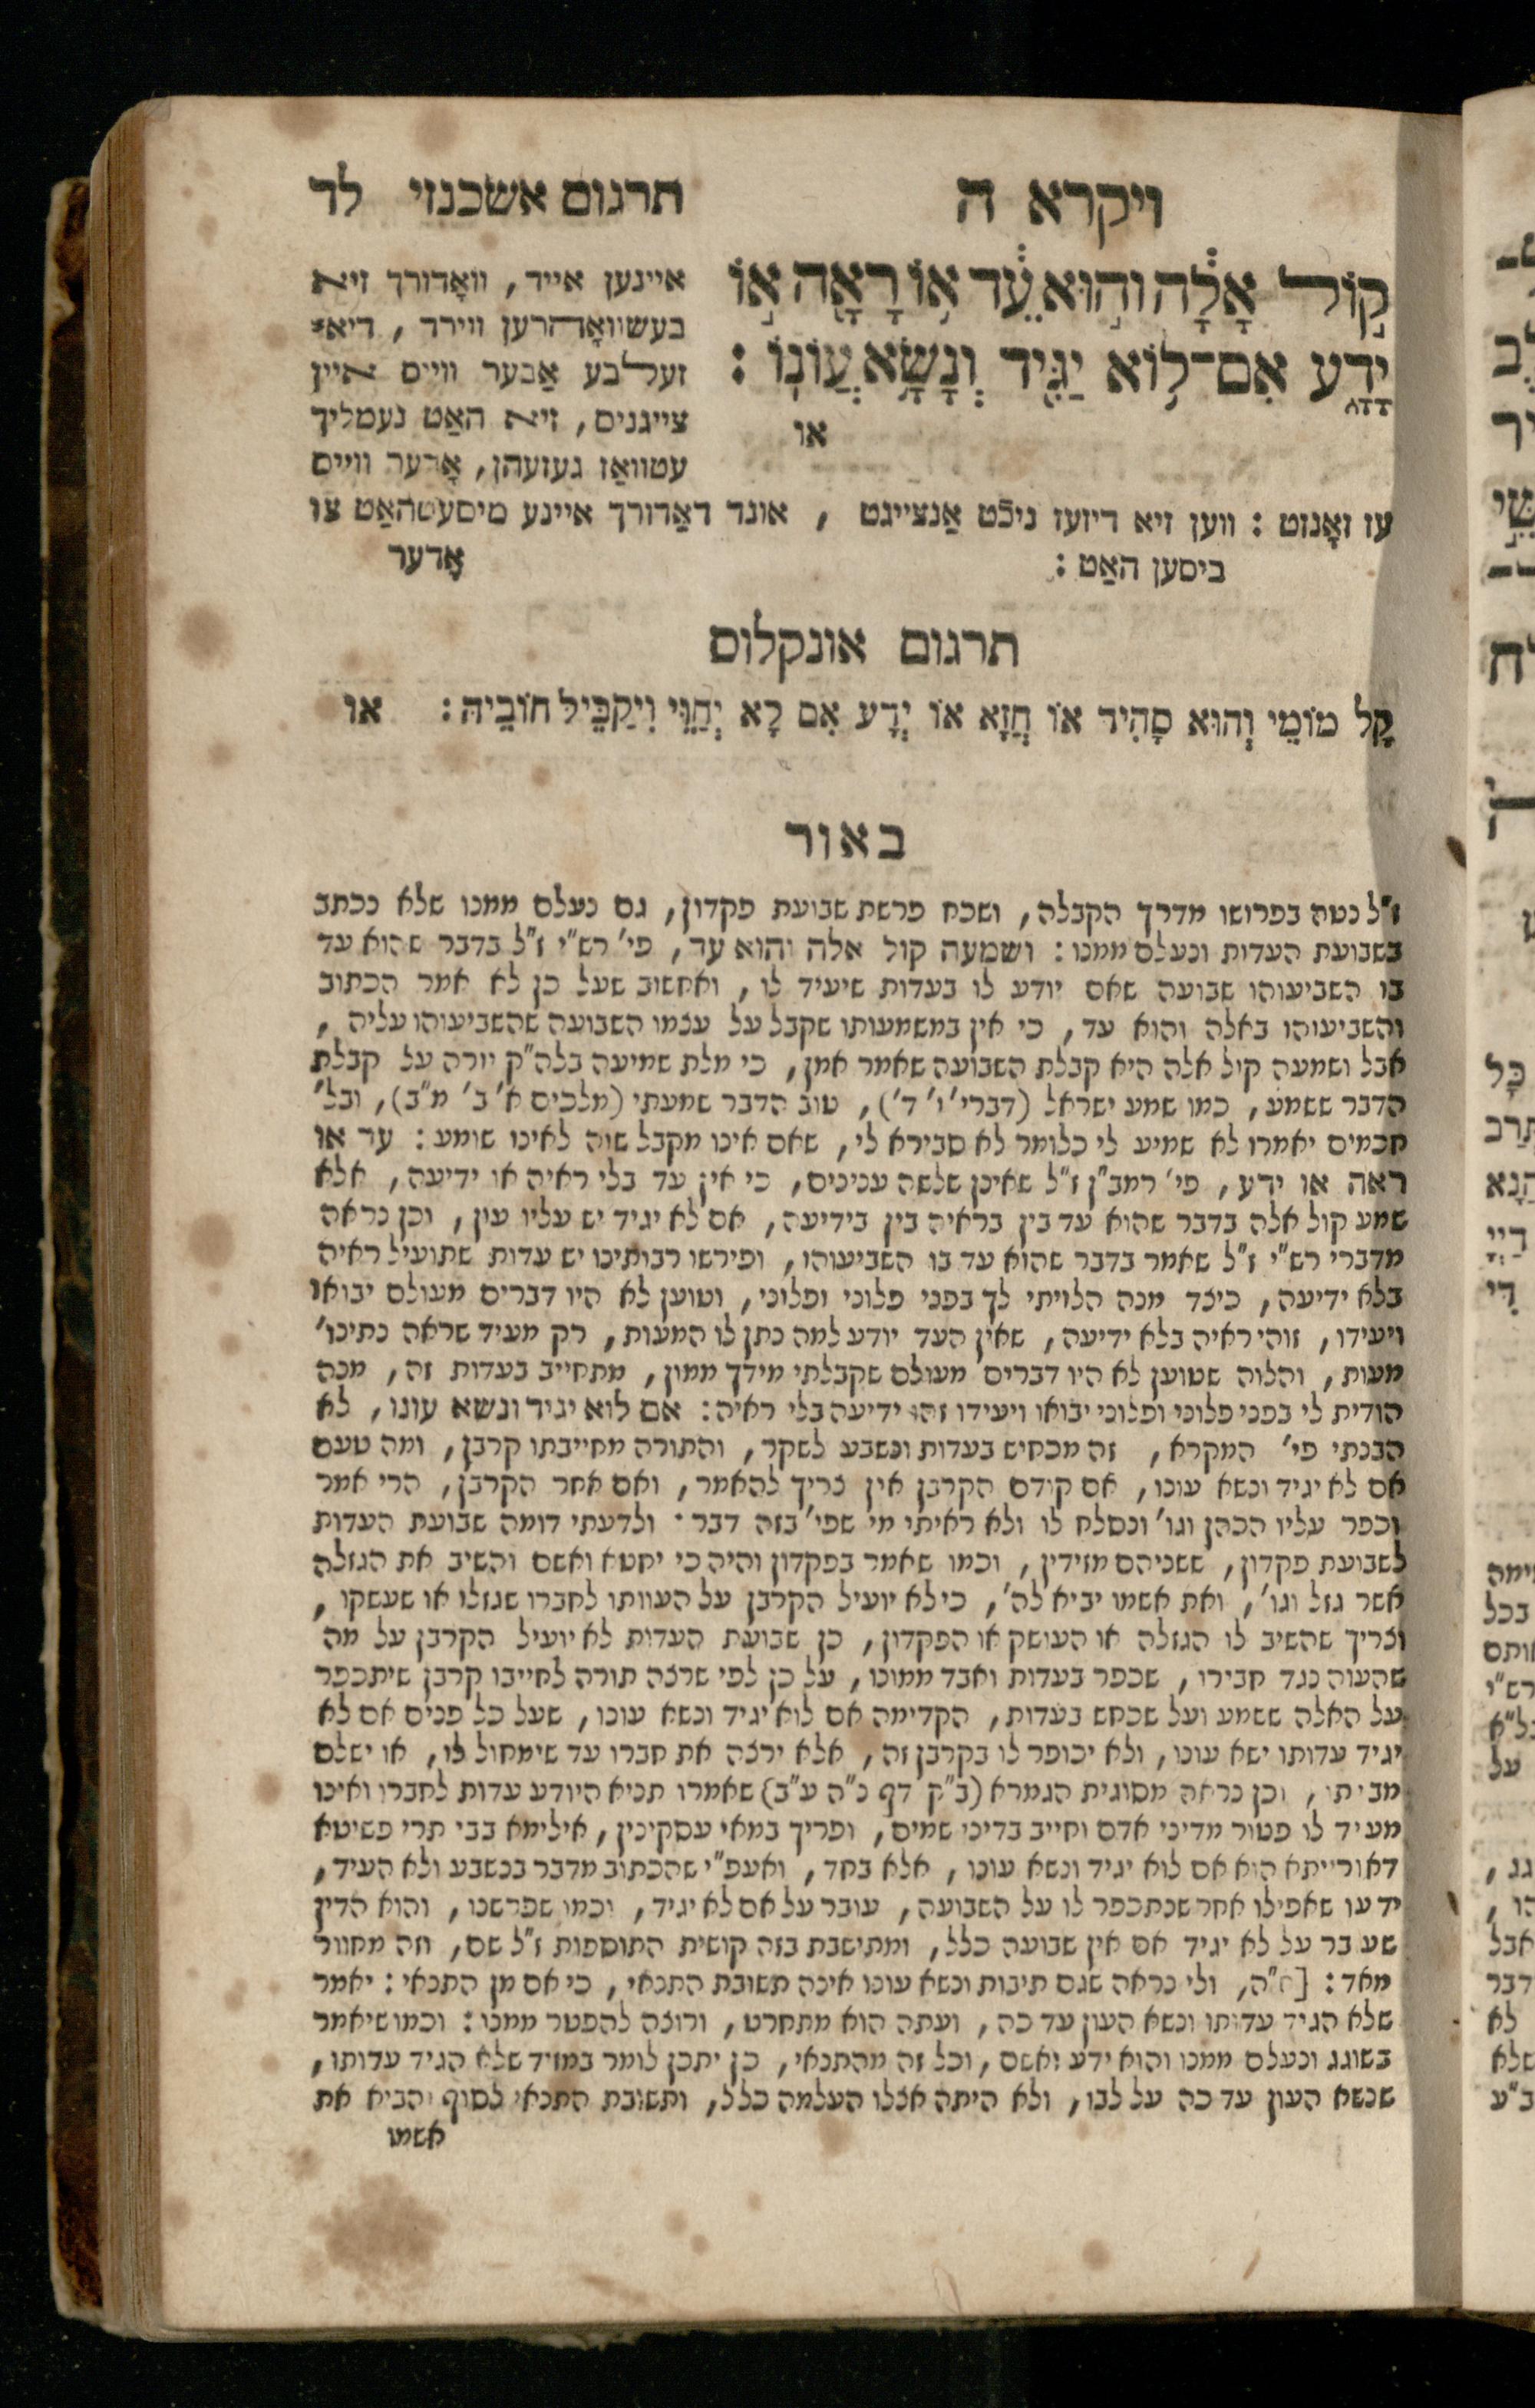 ויקרא ה
תרגום אשכנזי לד
קוֹל אָלָה וְהוּא עֵד אוֹ רָאָה אוֹ
יָדָע אִם־לוֹא יַגִּיד וְנָשָׂא עֲוֹנוֹ :
או
איינען אייד, וואָדורך זיא
בעשוואָהרען ווירד, דיא־
זעלבע אַבער ווייס איין
צייגנים, זיא האַט נעמליך
עטוואַז געזעהן, אָדער ווייס
עז זאָנזט : ווען זיא דיזעז ניכֿט אַנצייגט , אונד דאַדורך איינע מיסעטהאַט צו
ביסען האַט :
אָדער
תרגום אונקלוס
קָל מוֹמֵי וְהוּא סָהִיד אוֹ חֲזָא אוֹ יְדָע אִם לָא יְחַוֵּי וִיקַבֵּיל חוֹבֵיהּ : או
באור
ז"ל נטה בפרושו מדרך הקבלה, ושכח פרשת שבועת פקדון, גם נעלם ממנו שלא נכתב
בשבועת העדות ונעלם ממנו : ושמעה קול אלה והוא עד, פי' רש"י ז"ל בדבר שהוא עד
בו השביעוהו שבועה שאם יודע לו בעדות שיעיד לו, ואחשוב שעל כן לא אמר הכתוב
והשביעוהו באלה והוא עד, כי אין במשמעותו שקבל על עצמו השבועה שהשביעוהו עליה ,
אבל ושמעה קול אלה היא קבלת השבועה שאמר אמן, כי מלת שמיעה בלה"ק יורה על קבלת
הדבר ששמע, כמו שמע ישראל (דברי' ו' ד'), טוב הדבר שמעתי (מלכים א' ב' מ"ב), ובל'
חכמים יאמרו לא שמיע לי כלומר לא סבירא לי, שאם אינו מקבל שוה לאינו שומע : עד או
ראה או ידע, פי' רמב"ן ז"ל שאינן שלשה ענינים, כי אין עד בלי ראיה או ידיעה, אלא
שמע קול אלה בדבר שהוא עד בין בראיה בין בידיעה, אם לא יגיד יש עליו עון, וכן נראה
מדברי רש"י ז"ל שאמר בדבר שהוא עד בו השביעוהו, ופירשו רבותינו יש עדות שתועיל ראיה
בלא ידיעה, כיצד מנה הלויתי לך בפני פלוני ופלוני, וטוען לא היו דברים מעולם יבואו
ויעידו, זוהי ראיה בלא ידיעה, שאין העד יודע למה נתן לו המעות, רק מעיד שראה נתינו'
מעות, והלוה שטוען לא היו דברים מעולם שקבלתי מידך ממון, מתחייב בעדות זה, מנה
הודית לי בפני פלוני ופלוני יבואו ויעידו זהו ידיעה בלי ראיה : אם לוא יגיד ונשא עונו, לא
הבנתי פי' המקרא, זה מכחיש בעדות ונשבע לשקר, והתורה מחייבתו קרבן, ומה טעם
אם לא יגיד ונשא עונו, אם קודם הקרבן אין צריך להאמר, ואם אחר הקרבן, הרי אמר
וכפר עליו הכהן וגו' ונסלח לו ולא ראיתי מי שפי' בזה דבר · ולדעתי דומה שבועת העדות
לשבועת פקדון, ששניהם מזידין, וכמו שאמר בפקדון והיה כי יחטא ואשם והשיב את הגזלה
אשר גזל וגו', ואת אשמו יביא לה', כי לא יועיל הקרבן על העוותו לחברו שגזלו או שעשקו ,
וצריך שהשיב לו הגזלה או העושק או הפקדון, כן שבועת העדות לא יועיל הקרבן על מה
שהעוה נגד חבירו, שכפר בעדות ואבד ממונו, על כן לפי שרצה תורה לחייבו קרבן שיתכפר
על האלה ששמע ועל שכחש בעדות, הקדימה אם לוא יגיד ונשא עונו, שעל כל פנים אם לא
יגיד עדותו ישא עונו, ולא יכופר לו בקרבן זה, אלא ירצה את חברו עד שימחול לו, או ישלם
מביתו, וכן נראה מסוגית הגמרא (ב"ק דף נ"ה ע"ב) שאמרו תניא היודע עדות לחברו ואינו
מעיד לו פטור מדיני אדם וחייב בדיני שמים, ופריך במאי עסקינין, אילימא בבי תרי פשיטא
דאורייתא הוא אם לוא יגיד ונשא עונו, אלא בחד, ואעפ"י שהכתוב מדבר בנשבע ולא העיד,
ידעו שאפילו אחר שנתכפר לו על השבועה, עובר על אם לא יגיד, וכמו שפרשנו, והוא הדין
שעובר על לא יגיד אם אין שבועה כלל, ומתישבת בזה קושית התוספות ז"ל שם, וזה מחוור
מאד : ולי נראה שגם תיבות ונשא עונו אינה תשובת התנאי, כי אם מן התנאי : יאמר
שלא הגיד עדותו ונשא העון עד כה, ועתה הוא מתחרט, ורוצה להפטר ממנו : וכמו שיאמר
בשוגג ונעלם ממנו והוא ידע ואשם, וכל זה מהתנאי, כן יתכן לומר במזיד שלא הגיד עדותו,
שנשא העון עד כה על לבו, ולא היתה אצלו העלמה כלל, ותשובת התנאי לסוף והביא את
אשמו